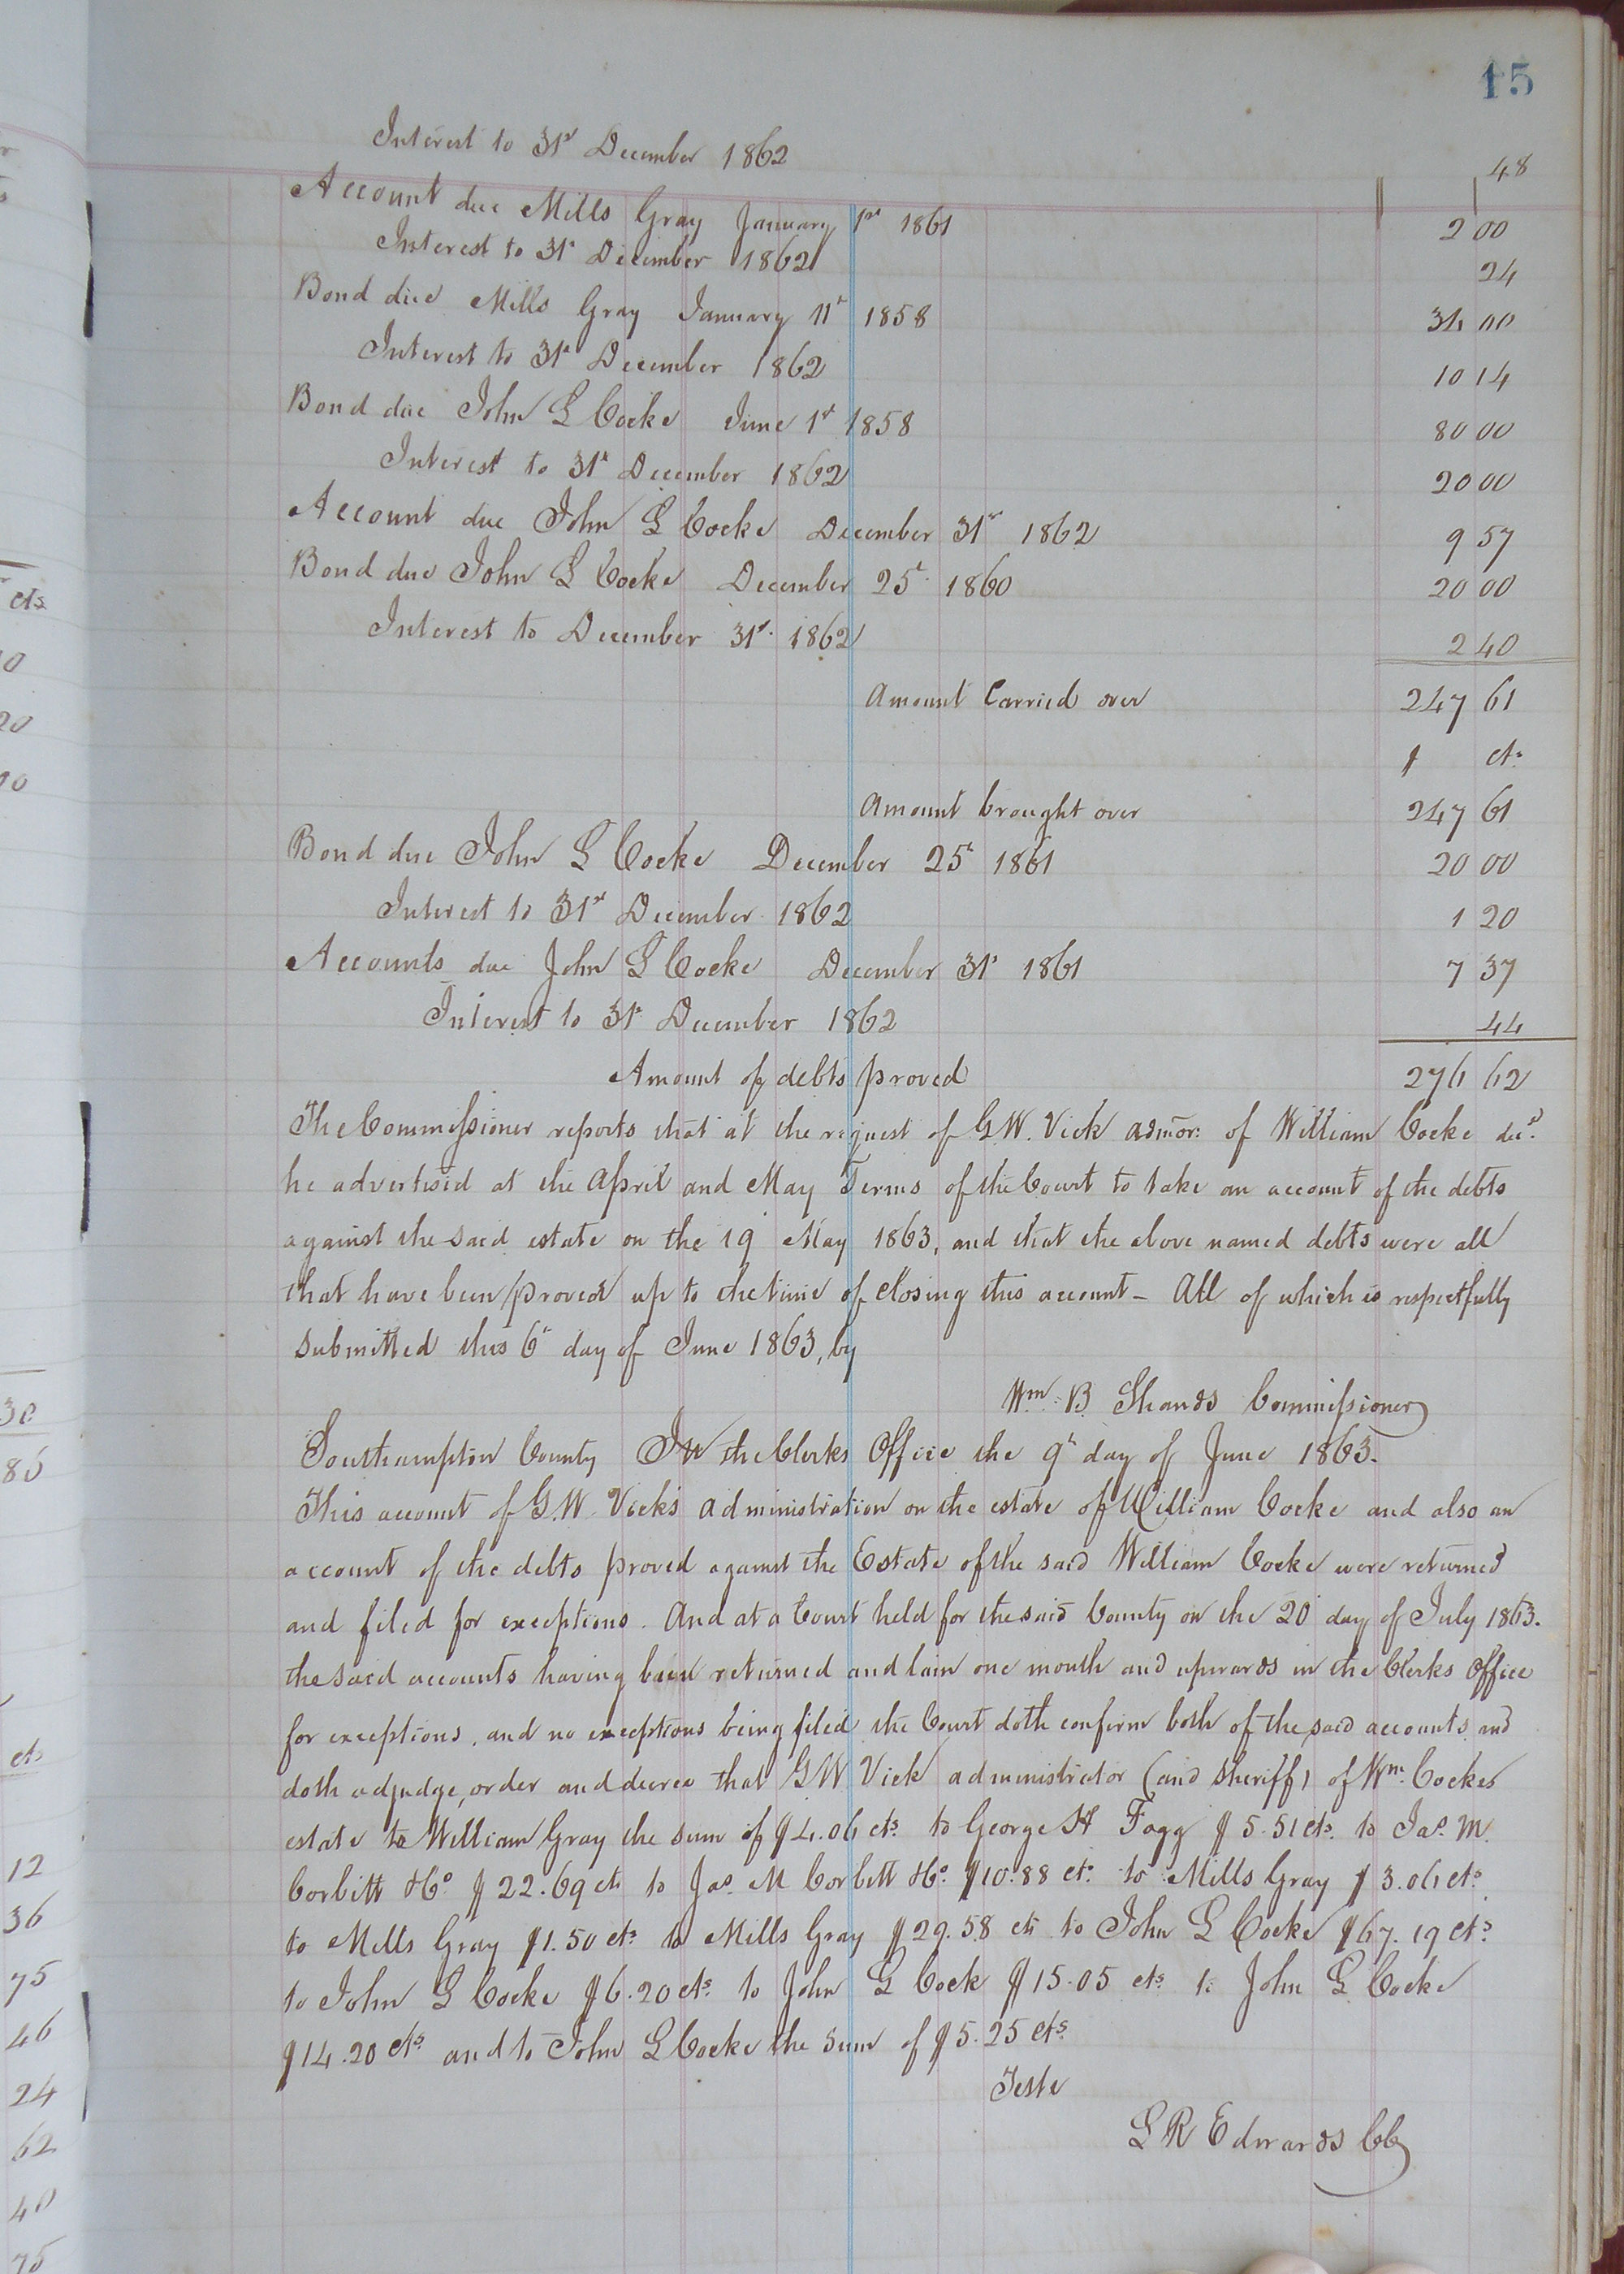 15
Interest to 31st December 1862 48
Account due Mills Gray January 1st 1861 2 00
Interest to 31st December 1862 24
Bond due Mills Gray January 11th 1858 34 00
Interest to 31st December 1862 10 14
Bond due John L Cocke June 1st 1858 80 00
Interest to 31st December 1862 20 00
Account due John L Cocke December 31st 1862 9 57
Bond due John L Cocke December 25th 1860 20 00
Interest to December 31st 1862 2 40
Amount Carried over 247 61
$ cts
Amount brought over 247 61
Bond due John L Cocke December 25th 1861 20 00
Interest to 31st December 1862 1 20
Accounts due John L Cocke December 31st 1861 7 37
Interest to 31st December 1862 44
Amount of debts proved 276 62
The Commissioner reports that at the request of G.W. Vick admor: of William Cocke decd.
he advertised at the April and May Terms of the Court to take an account of the debts
against the said estate on the 19 May 1863, and that the above named debts were all
that have been proved up to the time of closing this account - All of which is respectfully
submitted this 6th day of June 1863, by
Wm. B Shands Commissioner
Southampton County In the Clerks Office the 9th day of June 1863.
This account of G.W. Vick's administration on the estate of William Cocke and also an
account of the debts proved against the Estate of the said William Cocke were returned
and filed for exceptions. And at a Court held for the said County on the 20th day of July 1863.
the said accounts having been returned and lain one month and upwards in the Clerks Office
for exceptions, and no exceptions being filed the Court doth confirm both of the said accounts and
doth adjudge, order and decree that G W Vick administrator (and sheriff) of Wm. Cockes
estate to William Gray the sum of $4.06 cts. to George H Fagg $5.51 cts. to Jas. M.
Corbitt &Co $22.69 cts to Jas. M Corbitt &Co. $10.88 cts. to Mills Gray $3.06 cts.
to Mills Gray $1.50 cts. to Mills Gray $29.58 cts to John L Cocke $67.19 cts.
to John L Cocke $6.20 cts. to John L Cock $15.05 cts to John L Cocke
$14.20 cts. and to John L Cocke the sum of $5.25 cts.
Teste
L R Edwards CC
cts
30
80
cts
12
36
75
46
24
62
40
75